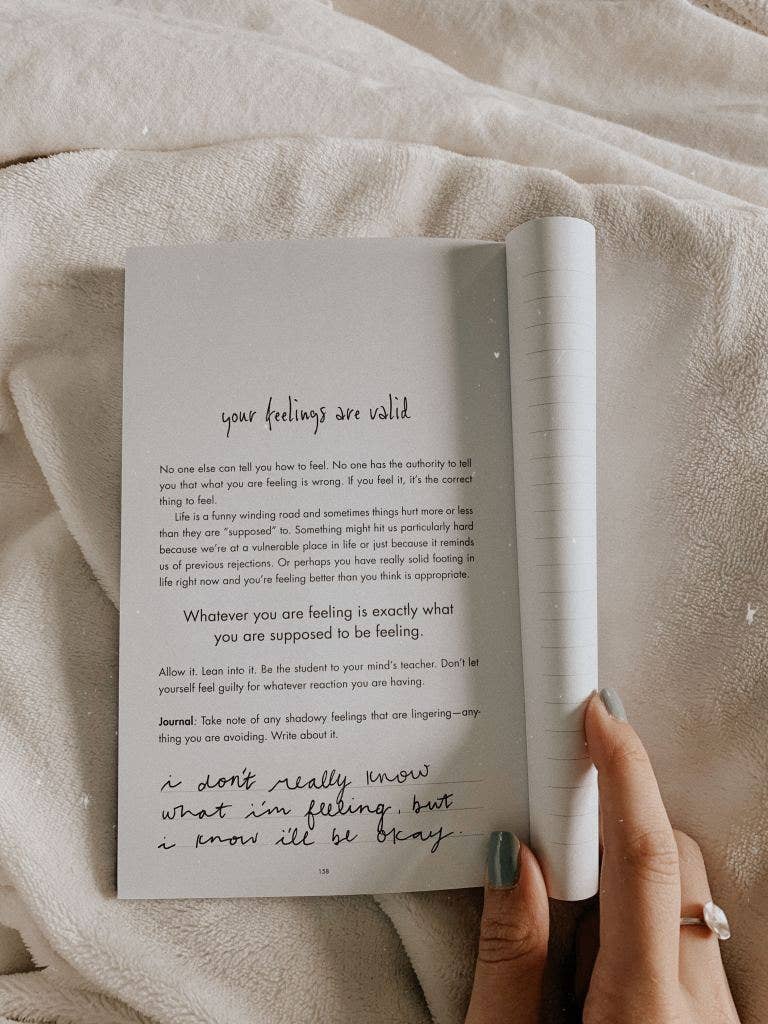 your feelings are valid
No one else can tell you how to feel. No one has the authority to tell
you that what you are feeling is wrong. If you feel it, it's the correct
thing to feel.
Life is a funny winding road and sometimes things hurt more or less
than they are “supposed” to. Something might hit us particularly hard
because we're at a vulnerable place in life or just because it reminds
us of previous rejections. Or perhaps you have really solid footing in
life right now and you're feeling better than you think is appropriate.
Whatever you are feeling is exactly what
you are supposed to be feeling.
Allow it. Lean into it. Be the student to your mind's teacher. Don't let
yourself feel guilty for whatever reaction you are having.
Journal: Take note of any shadowy feelings that are lingering—any-
thing you are avoiding. Write about it.
i don't really know
what i'm feeling, but
i know i'll be okay.
158